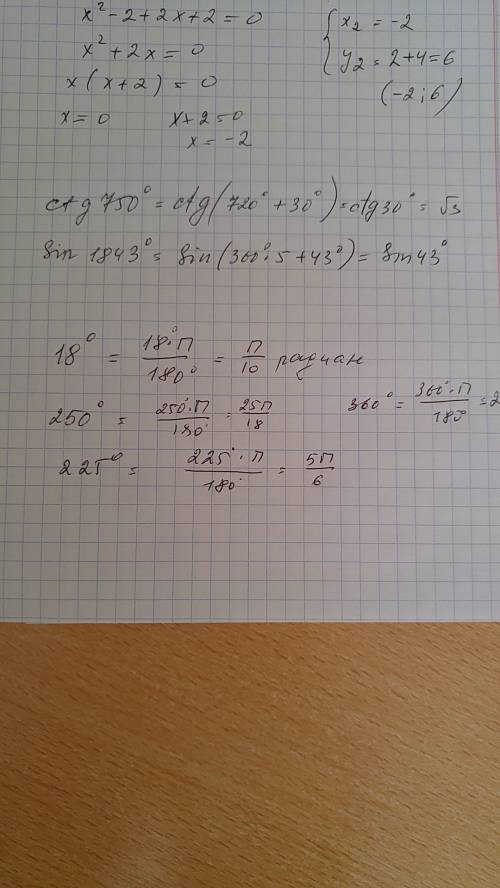 x² - 2 + 2x + 2 = 0
x² + 2x = 0
x(x + 2) = 0
x = 0 x + 2 = 0
x = -2
{ x₂ = -2
y₂ = 2 + 4 = 6
(-2; 6)
ctg 750° = ctg(720° + 30°) = ctg 30° = √3
sin 1843° = sin(360°·5 + 43°) = sin 43°
18° = 18°·П/180° = П/10 радиан
250° = 250°·П/180° = 25П/18
360° = 360°·П/180° = 2
225° = 225°·П/180° = 5П/6